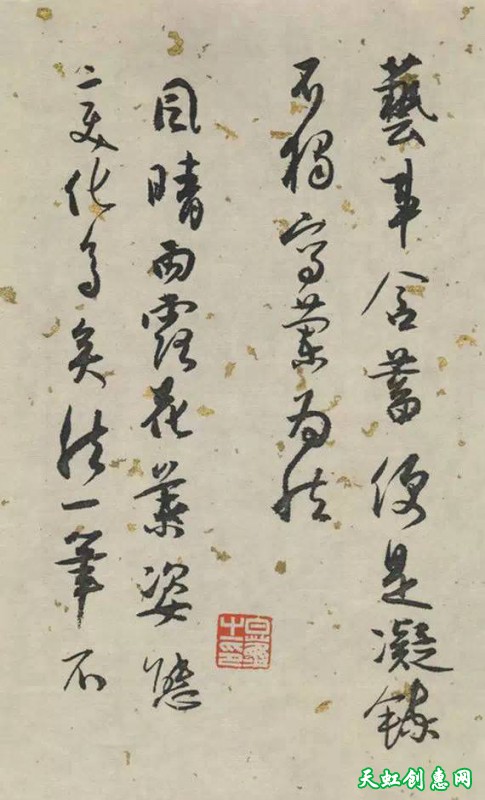 藝事含蓄便是凝鍊
不獨寫蘭為然
風晴雨露花葉姿態
之變化多矣然一筆不
天虹创惠网